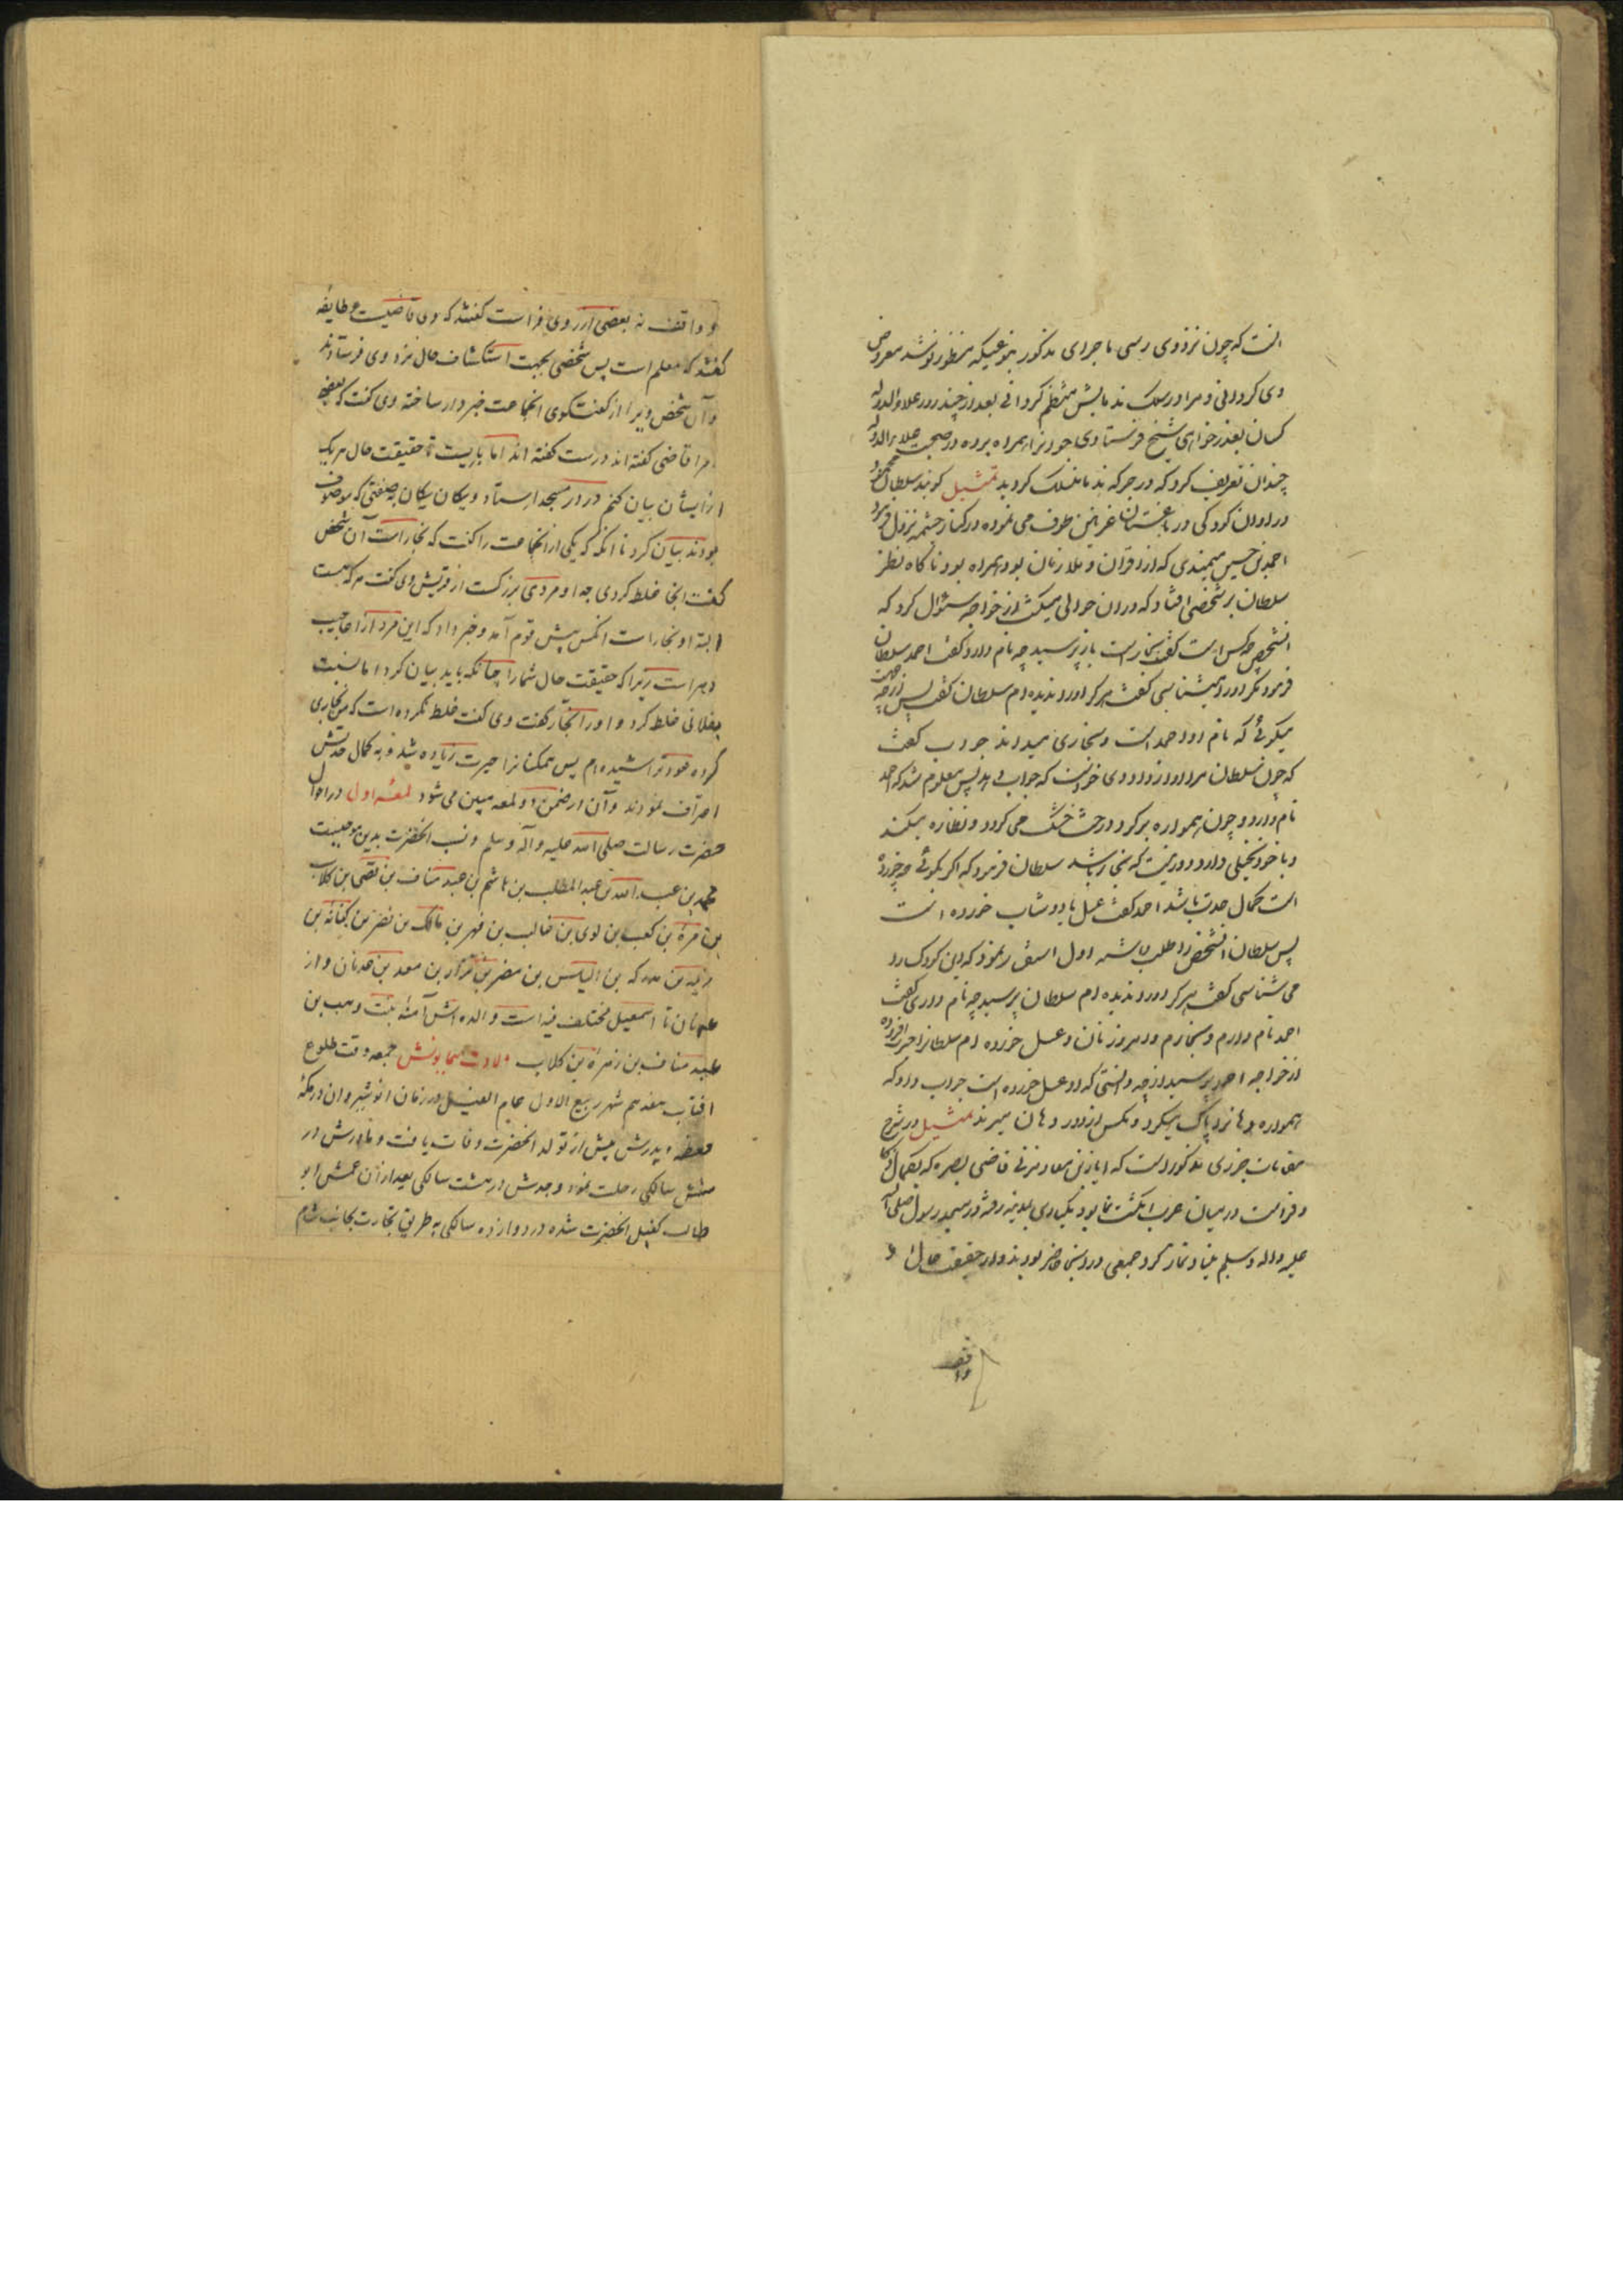 انست که چون نزد وی رسی ماجرای مذکور بنوعیکه منظور تو شد معروض
وی کردانی و مرا در سلک ندمایش منتظم کردانی بعد از چند روز علاء الدوله
کسان بعذرخواهی شیخ فرستاد وی جوانرا همراه برده در صحبت علاء الدوله
چندان تعریف کرد که در جرکه ندما منسلک کردید تمثیل کویند سلطان محمود
در اوان کودکی در باغستان غزنین طوف می نموده در کنار چشمه نزول فرمود
احمد بن حسین میمندی که از اقران و ملازمان بود همراه بود ناکاه نظر
سلطان بر شخصی افتاد که در ان حوالی میکشت از خواجه سئوال کرد که
انشخص چه کس است کفت نجار است باز پرسید چه نام دارد کفت احمد سلطان
فرمود مکر او را میشناسی کفت هرکز او را ندیده ام سلطان کفت پس از چه جهت
میکوئی که نام او احمد است و نجاری میداند جواب کفت
که چون سلطان مرا آواز داد وی خواست که جواب دهد پس معلوم شد که احمد
نام دارد و چون همواره بر کرد درخت خشک می کردد و نظاره میکند
و با خود تخیلی دارد دور نیست که نجار باشد سلطان فرمود که اکر بکوئی چه خورده
است کمال حدت باشد احمد کفت عسل یا دوشاب خورده است
پس سلطان انشخص را طلب داشته اول استفسار نمود که این کودک را
می شناسی کفت هرکز او را ندیده ام سلطان پرسید چه نام داری کفت
احمد نام دارم و نجارم و امروز نان و عسل خورده ام سلطانرا حیرت افزوده
از خواجه احمد پرسید از چه دانستی که او عسل خورده است جواب داد که
همواره دهانرا پاک میکرد و مکس از دور دهان میراند تمثیل در شرح
مقامات حریری مذکور است که ایاز بن معاد مزنی قاضی بصره که بکمال ذکا
و فراست در میان عرب انکشت نما بود یکباری بمدینه رفته در مسجد رسول صلی الله
علیه واله وسلم بنیاد نماز کرد جمعی در انجا حاضر بودند و از حقیقت حال او
واقف
و واقف نه بعضی از روی فراست کفتند که وی قاضیست و طایفه
کفتند که معلم است پس شخصی بجهت استکشاف حال نزد وی فرستادند
و آن شخص ویرا از کفتکوی انجماعت خبردار ساخته وی کفت که بعضی
مرا قاضی کفته اند درست کفته اند اما بایست تا حقیقت حال هر یک
از ایشان بیان کنم در در مسجد استاد و یکان یکان به صفتی که موصوف
بودند بیان کرد تا انکه که یکی از انجماعت را کفت که نجار است آن شخص
کفت اینجا غلط کردی چه او مردی بزرکست از قریش وی کفت هر که هست
البته او نجار است انکس پیش قوم آمد و خبر داد که این مرد از اعاجیب
دهر است زیرا که حقیقت حال شما را چنانکه باید بیان کرد اما نسبت
بفلانی غلط کرد و او را نجار کفت وی کفت غلط نکرده است که من نجاری
کرده عود تراشیده ام پس همکنانرا حیرت زیاده شد و به کمال حدتش
اعتراف نمودند و آن در ضمن دو لمعه مبین می شود لمعه اول در احوال
حضرت رسالت صلی الله علیه و آله و سلم و نسب انحضرت بدین موجبست
محمد بن عبد الله بن عبد المطلب بن هاشم بن عبد مناف بن قصی بن کلاب
بن مرة بن کعب بن لوی بن غالب بن فهر بن مالک بن نضر بن کنانه بن
خزیمه بن مدرکه بن الیاس بن مضر بن نزار بن معد بن عدنان و از
عدنان تا اسمعیل مختلف فیه است و الده اش آمنه بنت وهب بن
عبد مناف بن زهرة بن کلاب ولادت همایونش جمعه وقت طلوع
افتاب هفدهم شهر ربیع الاول عام الفیل در زمان انوشیروان در مکه
معظمه و پدرش پیش از تولد انحضرت وفات یافت و مادرش در
شش سالکی رحلت نمود و جدش در هشت سالکی بعد از آن عمش ابو
طالب کفیل انحضرت شده در دوازده سالکی به طریق تجارت بجانب شام